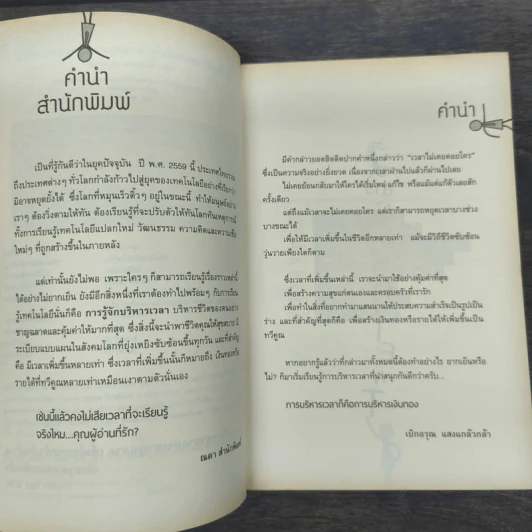 คำนำ
สำนักพิมพ์
เป็นที่รู้กันดีว่าในยุคปัจจุบัน ปี พ.ศ. 2559 นี้ ประเทศไทยรวม
ถึงประเทศต่างๆ ทั่วโลกกำลังก้าวไปสู่ยุคของเทคโนโลยีอย่างที่เรียกว่า
มิอาจหยุดยั้งได้ ซึ่งโลกที่หมุนเร็วติ้วๆ อยู่ในขณะนี้ ทำให้มนุษย์อย่าง
เราๆ ต้องวิ่งตามให้ทัน ต้องเรียนรู้ที่จะปรับตัวให้ทันโลกทันเหตุการณ์
ทั้งการเรียนรู้เทคโนโลยีแปลกใหม่ วัฒนธรรม ความคิดและความเชื่อ
ใหม่ๆ ที่ถูกสร้างขึ้นในภายหลัง
แต่เท่านั้นยังไม่พอ เพราะใครๆ ก็สามารถเรียนรู้เรื่องราวเหล่านี้
ได้อย่างไม่ยากเย็น ยังมีอีกสิ่งหนึ่งที่เราต้องทำไปพร้อมๆ กับการเรียน
รู้เทคโนโลยีนั่นก็คือ การรู้จักบริหารเวลา บริหารชีวิตของตนอย่าง
ชาญฉลาดและคุ้มค่าให้มากที่สุด ซึ่งสิ่งนี้จะนำพาชีวิตคุณให้สู่
ระเบียบแบบแผนในสังคมโลกที่ยุ่งเหยิงซับซ้อนขึ้นทุกวัน และที่สำคัญ
คือ มีเวลาเพิ่มขึ้นหลายเท่า ซึ่งเวลาที่เพิ่มขึ้นนั้นก็หมายถึง เงินทองหรือ
รายได้ที่ทวีคูณหลายเท่าเหมือนเงาตามตัวนั่นเอง
เช่นนี้แล้วคงไม่เสียเวลาที่จะเรียนรู้
จริงไหม...คุณผู้อ่านที่รัก?
ณดา สำนักพิมพ์
คำนำ
มีคำกล่าวยอดฮิตติดปากคำหนึ่งกล่าวว่า "เวลาไม่เคยคอยใคร"
ซึ่งเป็นความจริงอย่างยิ่งยวด เนื่องจากเวลาผ่านไปแล้วก็ผ่านไปเลย
ไม่เคยย้อนกลับมาให้ใครได้เริ่มใหม่ แก้ไข หรือแม้แต่แก้ตัวเลยสัก
ครั้งเดียว
แต่ถึงแม้เวลาจะไม่เคยคอยใคร แต่เราก็สามารถหยุดเวลาบางช่วง
บางขณะได้
เพื่อให้มีเวลาเพิ่มขึ้นในชีวิตอีกหลายเท่า แม้จะมีวิถีชีวิตซับซ้อน
วุ่นวายเพียงใดก็ตาม
ซึ่งเวลาที่เพิ่มขึ้นเหล่านี้ เราจะนำมาใช้อย่างคุ้มค่าที่สุด
เพื่อสร้างความสุขแก่ตนเองและครอบครัวที่เรารัก
เพื่อทำในสิ่งที่อยากทำมาแสนนานให้ประสบความสำเร็จเป็นรูปเป็น
ร่าง และที่สำคัญที่สุดก็คือ เพื่อสร้างเงินทองหรือรายได้ให้เพิ่มขึ้นเป็น
ทวีคูณ
หากอยากรู้แล้วว่าที่กล่าวมาทั้งหมดนี้ต้องทำอย่างไร ยากเย็นหรือ
ไม่? ก็มาเริ่มเรียนรู้การบริหารเวลาที่น่าสนุกกันดีกว่าครับ...
การบริหารเวลาก็คือการบริหารเงินทอง
เบิกอรุณ แสงแกล้วกล้า